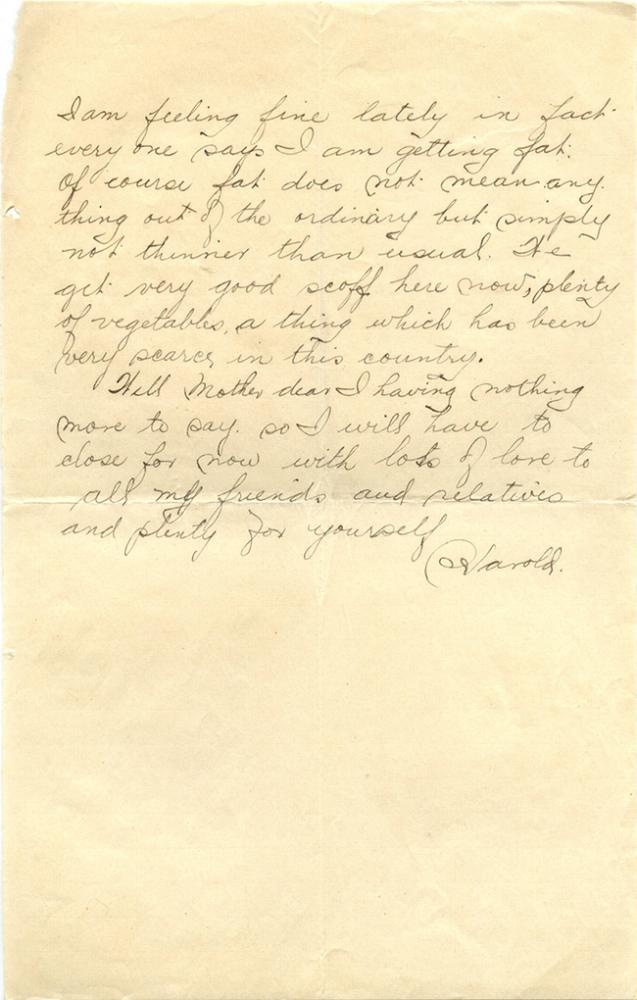 I am feeling fine lately in fact
every one says I am getting fat.
Of course fat does not mean any
thing out of the ordinary but simply
not thinner than usual. We
get very good scoff here now, plenty
of vegetables, a thing which has been
very scarce, in this country.
Well Mother dear I having nothing
more to say. so I will have to
close for now with lots of love to
all my friends and relatives
and plenty for yourself
Harold.